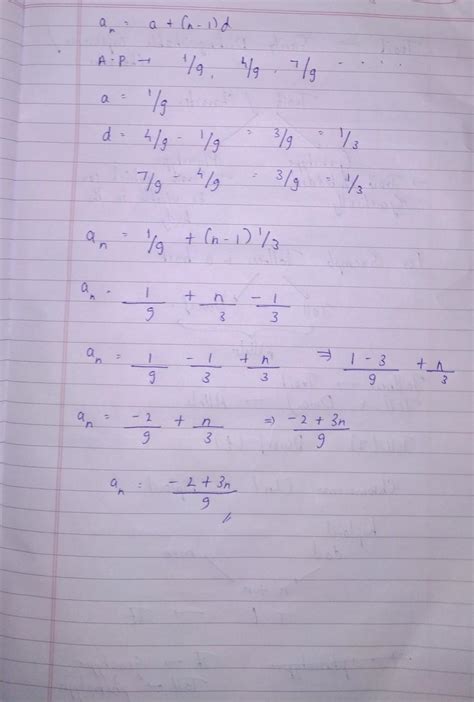 aₙ = a + (n-1)d
A.P → 1/9, 4/9, 7/9 - - - -
a = 1/9
d = 4/9 - 1/9 = 3/9 = 1/3
7/9 - 4/9 = 3/9 = 1/3
aₙ = 1/9 + (n-1) 1/3
aₙ = 1/9 + n/3 - 1/3
aₙ = 1/9 - 1/3 + n/3 ⇒ 1-3/9 + n/3
aₙ = -2/9 + n/3 ⇒ -2+3n/9
aₙ = -2+3n/9